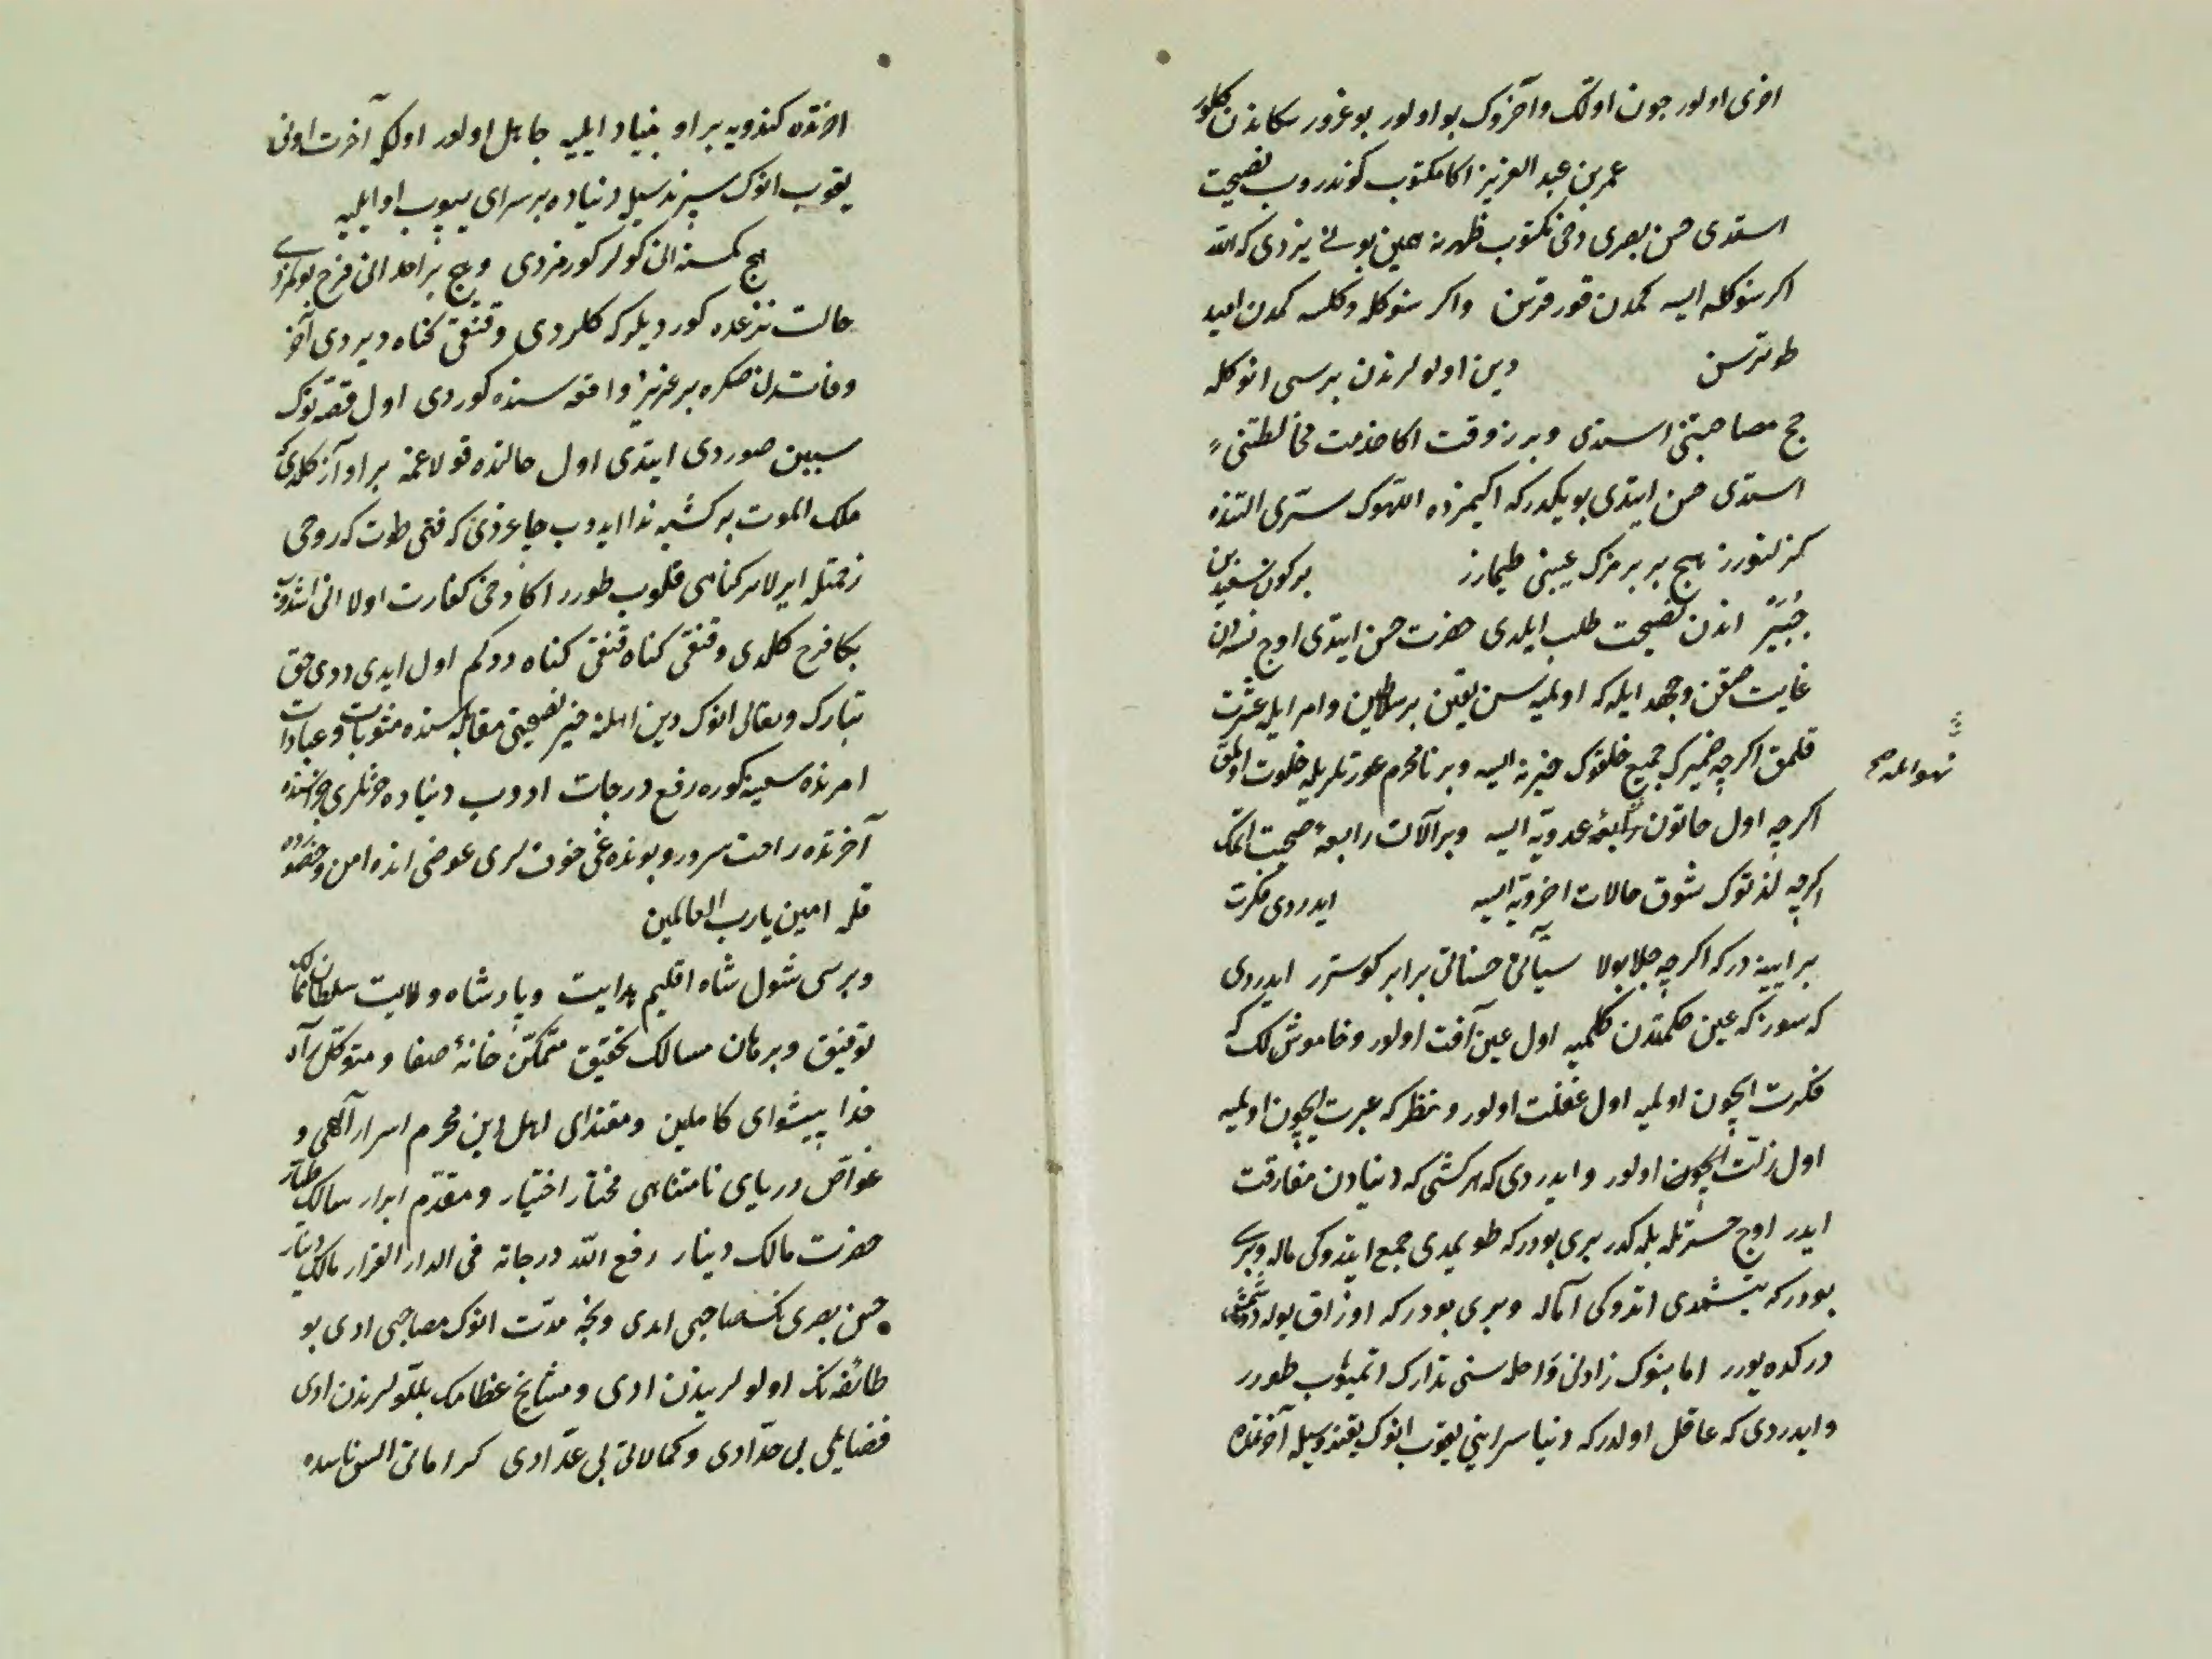 اخری اولور چون اولک و آخروک بو اولور بو غرور سکا ندن کلور
عمر بن عبد العزیز اکا مکتوب کوندروب نصیحت
استدی حسن بصری دخی مکتوب ظهرنه همین بونی یزدی که الله
اکر سنوکله ایسه کمدن قورقرسن و اکر سنوکله دکلسه کمدن امید
طوترسن دین اولولرندن برسی انوکله
حج مصاحبتنی استدی و بر زوقت اکا خدمت مخالطتنی
استدی حسن ایتدی بو یکدرکه ایکیمزده اللهوک ستری التنده
کزلنورز هیچ بر برمزک عیبنی طیمازز برکون سعید بن
جبیر اندن نصیحت طلب ایلدی حضرت حسن ایتدی اوچ نسه دن
غایت صقن و جهد ایله که اولمیه سن یقین بر سلاطین و امرا ایله عشرت
قلمق اکرچه ضمیرک جمیع خلقوک خیرنه ایسه و بر نامحرم عورتلریله خلوت اولمق
اکرچه اول خاتون رابعۀ عدویه ایسه و بر آلات رابعۀ صحبت اتمک
اکرچه لذتوک شوق حالات اخرویه ایسه ایدردی فکرت
بر ایینه درکه اکرچه جلا بولا سیآتی حسناتی برابر کوسترر ایدردی
که سوز که عین حکمتدن کلمیه اول عین آفت اولور و خاموش لک که
فکرت ایچون اولمیه اول غفلت اولور و نظر که عبرت ایچون اولمیه
اول زلت ایچون اولور و ایدردی که هر کشی که دنیادن مفارقت
ایدر اوچ حسرتله بله کدر بری بودرکه طویمدی جمع ایتدوکی ماله و بری
بودرکه یتشمدی اتدوکی آماله و بری بودرکه اوزاق یوله دوشمش
درکده یورر اما بنوک زادنی و راحله سنی تدارک اتمیوب طورر
و ایدردی که عاقل اولدرکه دنیا سراینی یقوب انوک یقندوسیله آخرتده
اخرتده کندویه بر او بنیاد ایلیه جاهل اولور اولکه آخرت اونی
یقوب انوک سپرندسیله دنیاده بر سرای یپوب او ایلیه
هیچ کمسنه انی کولر کورمزدی و هیچ بر احد انی فرح بولمزدی
حالت نزعده کوردیلرکه کلردی و قنقی کناه دیردی آخر
وفاتدن صکره بر عزیز واقعه سنده کوردی اول قصه نوک
سببین صوردی ایتدی اول حالتده قولاغمه بر آواز کلدی که
ملک الموت بر کشیه ندا ایدوب چاغردی که قتی طوت که روحی
زحمتله ایرلا بر کناهی قلوب طورر اکا دخی کفارت اولا انی اشدوب
بکا فرح کلدی و قنقی کناه قنقی کناه دردکم اول ایدی ددی حق
تبارک و تعالی انوک دین اهلنه خیر نصیحتی مقابله سنده مثوبات و عبادات
امرنده سعینه کوره رفع درجات ادوب دنیاده حزنلری جزاسنده
آخرتده راحت سرور و بونده غی خوف لری عوضی انده امن و حضور
قله امین یارب العالمین
و برسی شول شاه اقلیم هدایت و پادشاه ولایت سلطان ممالک
توفیق و برهان مسالک تحقیق متمکن خانۀ صفا و متوکل راه
خدا پیشوای کاملین و مقتدای اهل دین محرم اسرار آلهی و
غواص دریای نامتناهی مختار اختیار و مقدم ابرار سالک طیار
حضرت مالک دینار رفع الله درجاته فی الدار القرار مالک دینار
حسن بصری نک صاحبی ادی و نیجه مدت انوک مصاحبی ادی بو
طائفه نک اولولریندن ادی و مشایخ عظامک بللولرندن ادی
فضایلی بی حد ادی و کمالاتی بی عد ادی کراماتی السن ناسده